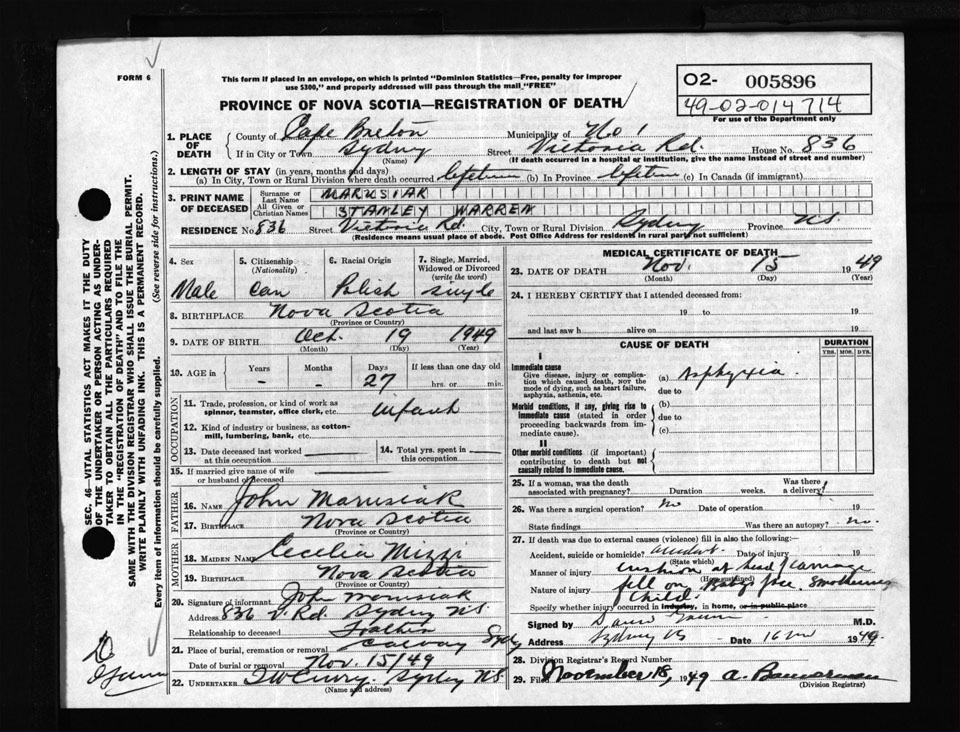 FORM 6
This form if placed in an envelope, on which is printed "Dominion Statistics—Free, penalty for improper
use $300," and properly addressed will pass through the mail "FREE"
PROVINCE OF NOVA SCOTIA—REGISTRATION OF DEATH
O2- 005896
49-02-014714
For use of the Department only
1. PLACE OF DEATH
County of Cape Breton Municipality of No 1
If in City or Town Sydney Street Victoria Rd. House No. 836
(Name) (If death occurred in a hospital or institution, give the name instead of street and number)
2. LENGTH OF STAY (in years, months and days)
(a) In City, Town or Rural Division where death occurred lifetime (b) In Province lifetime (c) In Canada (if immigrant)
3. PRINT NAME OF DECEASED
Surname or Last Name MARUSIAK
All Given or Christian Names STANLEY WARREN
RESIDENCE No 836 Street Victoria Rd. City, Town or Rural Division Sydney Province N.S.
(Residence means usual place of abode. Post Office Address for residents in rural part not sufficient)
4. Sex 5. Citizenship (Nationality) 6. Racial Origin 7. Single, Married, Widowed or Divorced (write the word)
Male Can Polish single
8. BIRTHPLACE Nova Scotia
(Province or Country)
9. DATE OF BIRTH Oct. 19 1949
(Month) (Day) (Year)
10. AGE in Years Months Days If less than one day old
- - 27 hrs. or min.
OCCUPATION
11. Trade, profession, or kind of work as
spinner, teamster, office clerk, etc. infant
12. Kind of industry or business, as cotton-
mill, lumbering, bank, etc.
13. Date deceased last worked at this occupation
14. Total yrs. spent in this occupation
15. If married give name of wife
or husband of deceased
FATHER
16. NAME John Marusiak
17. BIRTHPLACE Nova Scotia
(Province or Country)
MOTHER
18. MAIDEN NAME Cecelia Mizzi
19. BIRTHPLACE Nova Scotia
(Province or Country)
20. Signature of informant John Marusiak
Address 836 V. Rd. Sydney N.S.
Relationship to deceased Father
21. Place of burial, cremation or removal Calvary Sydney
Date of burial or removal Nov. 15/49
22. UNDERTAKER Sydney N.S.
(Name and address)
MEDICAL CERTIFICATE OF DEATH
23. DATE OF DEATH Nov. 15 1949
(Month) (Day) (Year)
24. I HEREBY CERTIFY that I attended deceased from:
19 to 19
and last saw h alive on 19
CAUSE OF DEATH
DURATION
YRS. MOS. DYS.
I
Immediate cause
Give disease, injury or complica-
tion which caused death, NOT the
mode of dying, such as heart failure,
asphyxia, asthenia, etc.
(a) Asphyxia.
due to
Morbid conditions, if any, giving rise to
immediate cause (stated in order
proceeding backwards from im-
mediate cause).
(b)
due to
(c)
II
Other morbid conditions (if important)
contributing to death but not
causally related to immediate cause.
25. If a woman, was the death
associated with pregnancy? Duration weeks. Was there a delivery?
26. Was there a surgical operation? no Date of operation 19
State findings Was there an autopsy? no.
27. If death was due to external causes (violence) fill in also the following:
Accident, suicide or homicide? accident Date of injury 19
(State which)
Manner of injury cushion at head of carriage
(How sustained)
Nature of injury fell on Babys face Smothering
child.
Specify whether injury occurred in industry, in home, or in public place
Signed by M.D.
Address Sydney NS Date 16 Nov 1949
28. Division Registrar's Record Number
29. Filed November 18, 1949 A. Bannerman
(Division Registrar)
SEC. 46—VITAL STATISTICS ACT MAKES IT THE DUTY
OF THE UNDERTAKER OR PERSON ACTING AS UNDER-
TAKER TO OBTAIN ALL THE PARTICULARS REQUIRED
IN THE "REGISTRATION OF DEATH" AND TO FILE THE
SAME WITH THE DIVISION REGISTRAR WHO SHALL ISSUE THE BURIAL PERMIT.
WRITE PLAINLY WITH UNFADING INK. THIS IS A PERMANENT RECORD.
Every item of information should be carefully supplied. (See reverse side for instructions.)